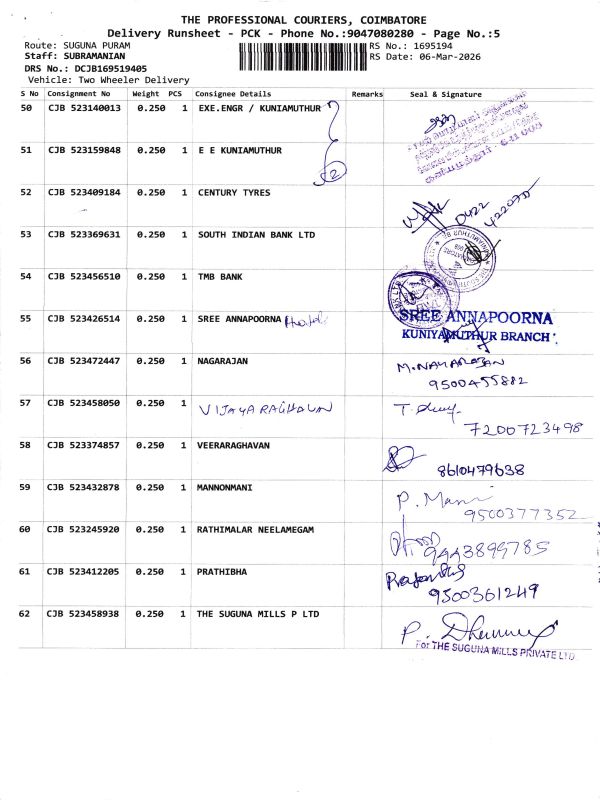 THE PROFESSIONAL COURIERS, COIMBATORE
Delivery Runsheet - PCK - Phone No.:9047080280 - Page No.:5
Route: SUGUNA PURAM
RS No.: 1695194
Staff: SUBRAMANIAN
RS Date: 06-Mar-2026
DRS No.: DCJB169519405
Vehicle: Two Wheeler Delivery
S No Consignment No Weight PCS Consignee Details Remarks Seal & Signature
50 CJB 523140013 0.250 1 EXE.ENGR / KUNIAMUTHUR
51 CJB 523159848 0.250 1 E E KUNIAMUTHUR
2
52 CJB 523409184 0.250 1 CENTURY TYRES
0422
422070
53 CJB 523369631 0.250 1 SOUTH INDIAN BANK LTD
54 CJB 523456510 0.250 1 TMB BANK
55 CJB 523426514 0.250 1 SREE ANNAPOORNA Hotel
SREE ANNAPOORNA
KUNIYAMUTHUR BRANCH
56 CJB 523472447 0.250 1 NAGARAJAN
M.NAGARAJAN
9500455882
57 CJB 523458050 0.250 1 VIJAYARAGHAVAN
7200723498
58 CJB 523374857 0.250 1 VEERARAGHAVAN
8610479638
59 CJB 523432878 0.250 1 MANNONMANI
P. Mani
9500377352
60 CJB 523245920 0.250 1 RATHIMALAR NEELAMEGAM
9443899785
61 CJB 523412205 0.250 1 PRATHIBHA
9500361249
62 CJB 523458938 0.250 1 THE SUGUNA MILLS P LTD
For THE SUGUNA MILLS PRIVATE LTD